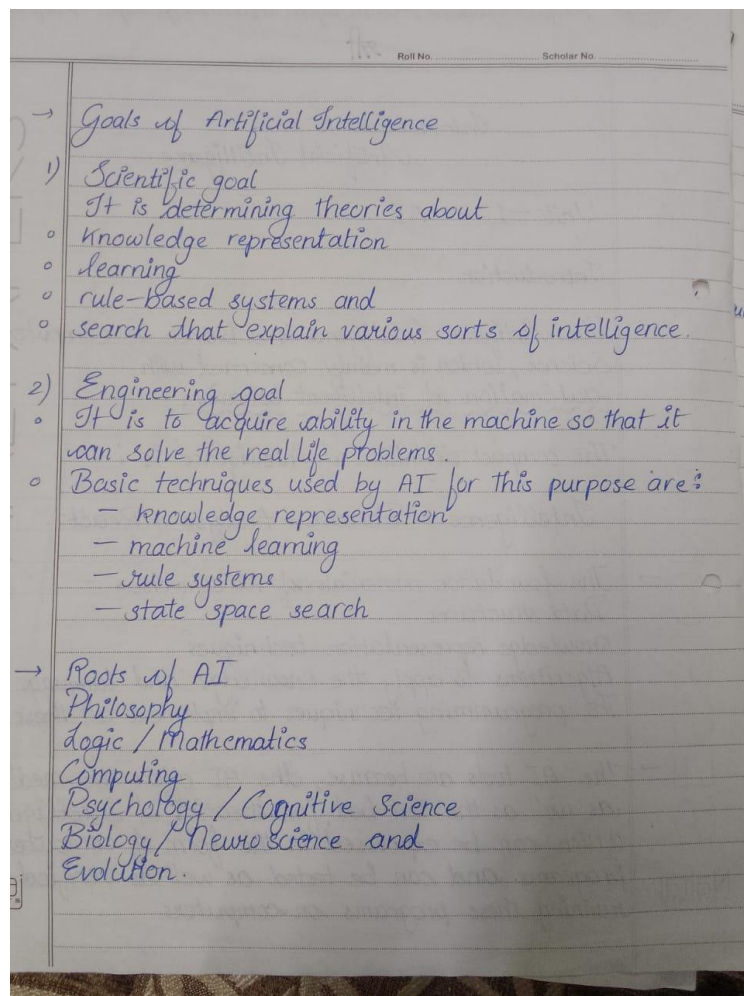 Roll No. Scholar No.
→ Goals of Artificial Intelligence
1) Scientific goal
It is determining theories about
o knowledge representation
o learning
o rule-based systems and
o search that explain various sorts of intelligence.
2) Engineering goal
o It is to acquire ability in the machine so that it
can solve the real life problems.
o Basic techniques used by AI for this purpose are:
- knowledge representation
- machine learning
- rule systems
- state space search
→ Roots of AI
Philosophy
Logic / Mathematics
Computing
Psychology / Cognitive Science
Biology / Neuroscience and
Evolution.